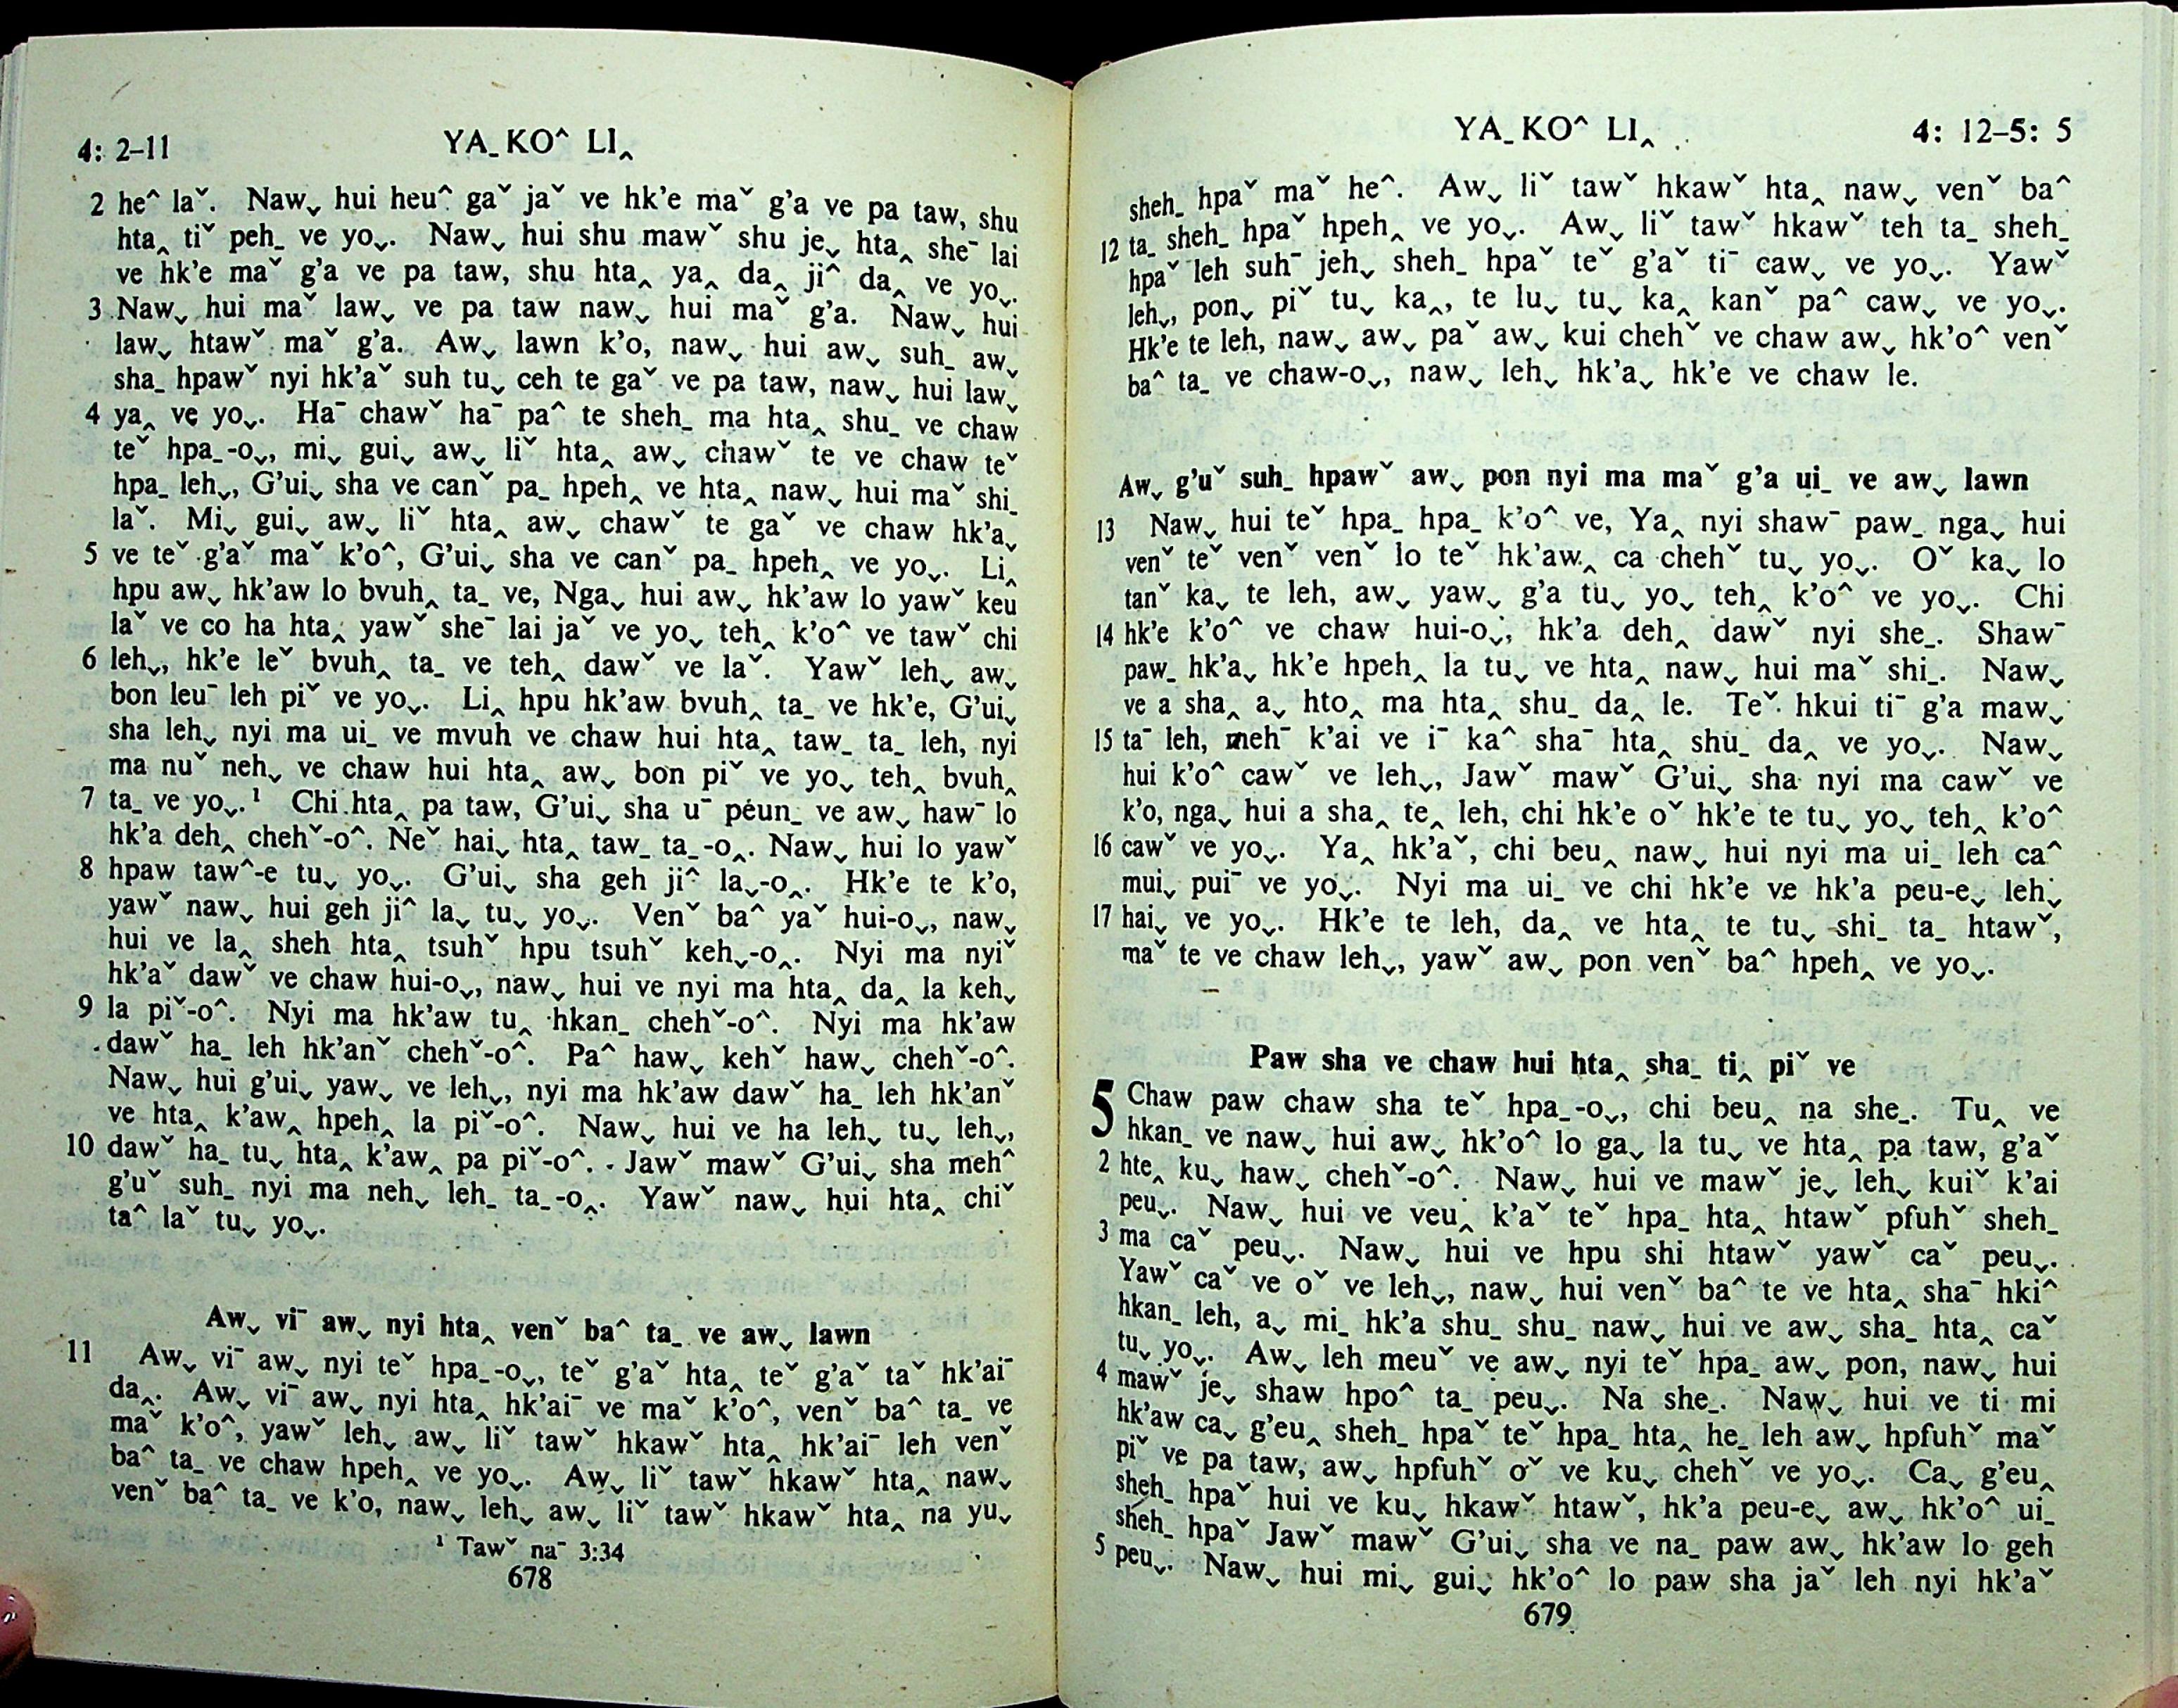 4: 2–11
YA˗ KO^ LI‸
2 he^ laˇ. Naw⌄ hui heu^ gaˇ jaˇ ve hk'e maˇ g'a ve pa taw, shu
hta‸ tiˇ peh˗ ve yo⌄. Naw⌄ hui shu mawˇ shu je⌄ hta‸ she¯ lai
ve hk'e maˇ g'a ve pa taw, shu hta‸ ya‸ da‸ ji^ da‸ ve yo⌄.
3 Naw⌄ hui maˇ law⌄ ve pa taw naw⌄ hui maˇ g'a. Naw⌄ hui
law⌄ htawˇ maˇ g'a. Aw⌄ lawn k'o, naw⌄ hui aw⌄ suh˗ aw⌄
sha˗ hpawˇ nyi hk'aˇ suh tu⌄ ceh te gaˇ ve pa taw, naw⌄ hui law⌄
4 ya‸ ve yo⌄. Ha¯ chawˇ ha¯ pa^ te sheh˗ ma hta‸ shu˗ ve chaw
teˇ hpa˗-o⌄, mi⌄ gui⌄ aw⌄ liˇ hta‸ aw⌄ chawˇ te ve chaw teˇ
hpa˗ leh⌄, G'ui⌄ sha ve canˇ pa˗ hpeh‸ ve hta‸ naw⌄ hui maˇ shi˗
laˇ. Mi⌄ gui⌄ aw⌄ liˇ hta‸ aw⌄ chawˇ te gaˇ ve chaw hk'a⌄
5 ve teˇ g'aˇ maˇ k'o^, G'ui⌄ sha ve canˇ pa˗ hpeh‸ ve yo⌄. Li‸
hpu aw⌄ hk'aw lo bvuh‸ ta˗ ve, Nga⌄ hui aw⌄ hk'aw lo yawˇ keu
laˇ ve co ha hta‸ yawˇ she¯ lai jaˇ ve yo⌄ teh‸ k'o^ ve tawˇ chi
6 leh⌄, hk'e leˇ bvuh‸ ta˗ ve teh‸ dawˇ ve laˇ. Yawˇ leh⌄ aw⌄
bon leu¯ leh piˇ ve yo⌄. Li‸ hpu hk'aw bvuh‸ ta˗ ve hk'e, G'ui⌄
sha leh⌄ nyi ma ui˗ ve mvuh ve chaw hui hta‸ taw˗ ta˗ leh, nyi
ma nuˇ neh⌄ ve chaw hui hta‸ aw⌄ bon piˇ ve yo⌄ teh‸ bvuh‸
7 ta˗ ve yo⌄.¹ Chi hta‸ pa taw, G'ui⌄ sha u¯ peun˗ ve aw⌄ haw¯ lo
hk'a deh‸ chehˇ-o^. Neˇ hai⌄ hta‸ taw˗ ta˗-o‸. Naw⌄ hui lo yawˇ
8 hpaw taw^-e tu⌄ yo⌄. G'ui⌄ sha geh ji^ la⌄-o‸. Hk'e te k'o,
yawˇ naw⌄ hui geh ji^ la⌄ tu⌄ yo⌄. Venˇ ba^ yaˇ hui-o⌄, naw⌄
hui ve la‸ sheh hta‸ tsuhˇ hpu tsuhˇ keh⌄-o‸. Nyi ma nyiˇ
hk'aˇ dawˇ ve chaw hui-o⌄, naw⌄ hui ve nyi ma hta‸ da‸ la keh⌄
9 la piˇ-o^. Nyi ma hk'aw tu‸ hkan˗ chehˇ-o^. Nyi ma hk'aw
dawˇ ha˗ leh hk'anˇ chehˇ-o^. Pa^ haw⌄ kehˇ haw⌄ chehˇ-o^.
Naw⌄ hui g'ui⌄ yaw⌄ ve leh⌄, nyi ma hk'aw dawˇ ha˗ leh hk'anˇ
ve hta‸ k'aw‸ hpeh‸ la piˇ-o^. Naw⌄ hui ve ha leh⌄ tu⌄ leh⌄,
10 dawˇ ha˗ tu⌄ hta‸ k'aw‸ pa piˇ-o^. Jawˇ mawˇ G'ui⌄ sha meh^
g'uˇ suh˗ nyi ma neh⌄ leh˗ ta˗-o‸. Yawˇ naw⌄ hui hta‸ chiˇ
ta^ laˇ tu⌄ yo⌄.
Aw⌄ vi¯ aw⌄ nyi hta‸ venˇ ba^ ta˗ ve aw⌄ lawn
11 Aw⌄ vi¯ aw⌄ nyi teˇ hpa˗-o⌄, teˇ g'aˇ hta‸ teˇ g'aˇ taˇ hk'ai¯
da‸. Aw⌄ vi¯ aw⌄ nyi hta‸ hk'ai¯ ve maˇ k'o^, venˇ ba^ ta˗ ve
maˇ k'o^, yawˇ leh⌄ aw⌄ liˇ tawˇ hkawˇ hta‸ hk'ai¯ leh venˇ
ba^ ta˗ ve chaw hpeh‸ ve yo⌄. Aw⌄ liˇ tawˇ hkawˇ hta‸ naw⌄
venˇ ba^ ta˗ ve k'o, naw⌄ leh⌄ aw⌄ liˇ tawˇ hkawˇ hta‸ na yu⌄
¹ Tawˇ na¯ 3:34
678
YA˗ KO^ LI‸
4: 12–5: 5
sheh˗ hpaˇ maˇ he^. Aw⌄ liˇ tawˇ hkawˇ hta‸ naw⌄ venˇ ba^
12 ta˗ sheh˗ hpaˇ hpeh‸ ve yo⌄. Aw⌄ liˇ tawˇ hkawˇ teh ta˗ sheh˗
hpaˇ leh suh¯ jeh⌄ sheh˗ hpaˇ teˇ g'aˇ ti¯ caw⌄ ve yo⌄. Yawˇ
leh⌄, pon⌄ piˇ tu⌄ ka‸, te lu⌄ tu⌄ ka‸ kanˇ pa^ caw⌄ ve yo⌄.
Hk'e te leh, naw⌄ aw⌄ paˇ aw⌄ kui chehˇ ve chaw aw⌄ hk'o^ venˇ
ba^ ta˗ ve chaw-o⌄, naw⌄ leh⌄ hk'a⌄ hk'e ve chaw le.
Aw⌄ g'uˇ suh˗ hpawˇ aw⌄ pon nyi ma maˇ g'a ui˗ ve aw⌄ lawn
13 Naw⌄ hui teˇ hpa˗ hpa˗ k'o^ ve, Ya‸ nyi shaw¯ paw˗ nga⌄ hui
venˇ teˇ venˇ venˇ lo teˇ hk'aw‸ ca chehˇ tu⌄ yo⌄. Oˇ ka⌄ lo
tanˇ ka⌄ te leh, aw⌄ yaw⌄ g'a tu⌄ yo⌄ teh‸ k'o^ ve yo⌄. Chi
14 hk'e k'o^ ve chaw hui-o⌄, hk'a deh‸ dawˇ nyi she˗. Shaw¯
paw˗ hk'a⌄ hk'e hpeh‸ la tu⌄ ve hta‸ naw⌄ hui maˇ shi˗. Naw⌄
ve a sha‸ a⌄ hto‸ ma hta‸ shu˗ da‸ le. Teˇ hkui ti¯ g'a maw⌄
15 ta¯ leh, meh¯ k'ai ve i¯ ka^ sha¯ hta‸ shu˗ da‸ ve yo⌄. Naw⌄
hui k'o^ cawˇ ve leh⌄, Jawˇ mawˇ G'ui⌄ sha nyi ma cawˇ ve
k'o, nga⌄ hui a sha‸ te‸ leh, chi hk'e oˇ hk'e te tu⌄ yo⌄ teh‸ k'o^
16 cawˇ ve yo⌄. Ya‸ hk'aˇ, chi beu‸ naw⌄ hui nyi ma ui˗ leh ca^
mui⌄ pui¯ ve yo⌄. Nyi ma ui˗ ve chi hk'e ve hk'a peu-e⌄ leh⌄
17 hai⌄ ve yo⌄. Hk'e te leh, da‸ ve hta‸ te tu⌄ shi˗ ta˗ htawˇ,
maˇ te ve chaw leh⌄, yawˇ aw⌄ pon venˇ ba^ hpeh‸ ve yo⌄.
Paw sha ve chaw hui hta‸ sha˗ ti‸ piˇ ve
5 Chaw paw chaw sha teˇ hpa˗-o⌄, chi beu‸ na she˗. Tu‸ ve
hkan˗ ve naw⌄ hui aw⌄ hk'o^ lo ga⌄ la tu⌄ ve hta‸ pa taw, g'aˇ
2 hte‸ ku⌄ haw⌄ chehˇ-o^. Naw⌄ hui ve mawˇ je⌄ leh⌄ kuiˇ k'ai
peu⌄. Naw⌄ hui ve veu‸ k'aˇ teˇ hpa˗ hta‸ htawˇ pfuhˇ sheh˗
3 ma caˇ peu⌄. Naw⌄ hui ve hpu shi htawˇ yawˇ caˇ peu⌄.
Yawˇ caˇ ve oˇ ve leh⌄, naw⌄ hui venˇ ba^ te ve hta‸ sha¯ hki^
hkan˗ leh, a⌄ mi˗ hk'a shu˗ shu˗ naw⌄ hui ve aw⌄ sha˗ hta‸ caˇ
tu⌄ yo⌄. Aw⌄ leh meuˇ ve aw⌄ nyi teˇ hpa˗ aw⌄ pon, naw⌄ hui
4 mawˇ je⌄ shaw hpo^ ta˗ peu⌄. Na she˗. Naw⌄ hui ve ti mi
hk'aw ca⌄ g'eu‸ sheh˗ hpaˇ teˇ hpa˗ hta‸ he˗ leh aw⌄ hpfuhˇ maˇ
piˇ ve pa taw, aw⌄ hpfuhˇ oˇ ve ku⌄ chehˇ ve yo⌄. Ca⌄ g'eu‸
sheh˗ hpaˇ hui ve ku⌄ hkawˇ htawˇ, hk'a peu-e⌄ aw⌄ hk'o^ ui˗
sheh˗ hpaˇ Jawˇ mawˇ G'ui⌄ sha ve na˗ paw aw⌄ hk'aw lo geh
5 peu⌄. Naw⌄ hui mi⌄ gui⌄ hk'o^ lo paw sha jaˇ leh nyi hk'aˇ
679